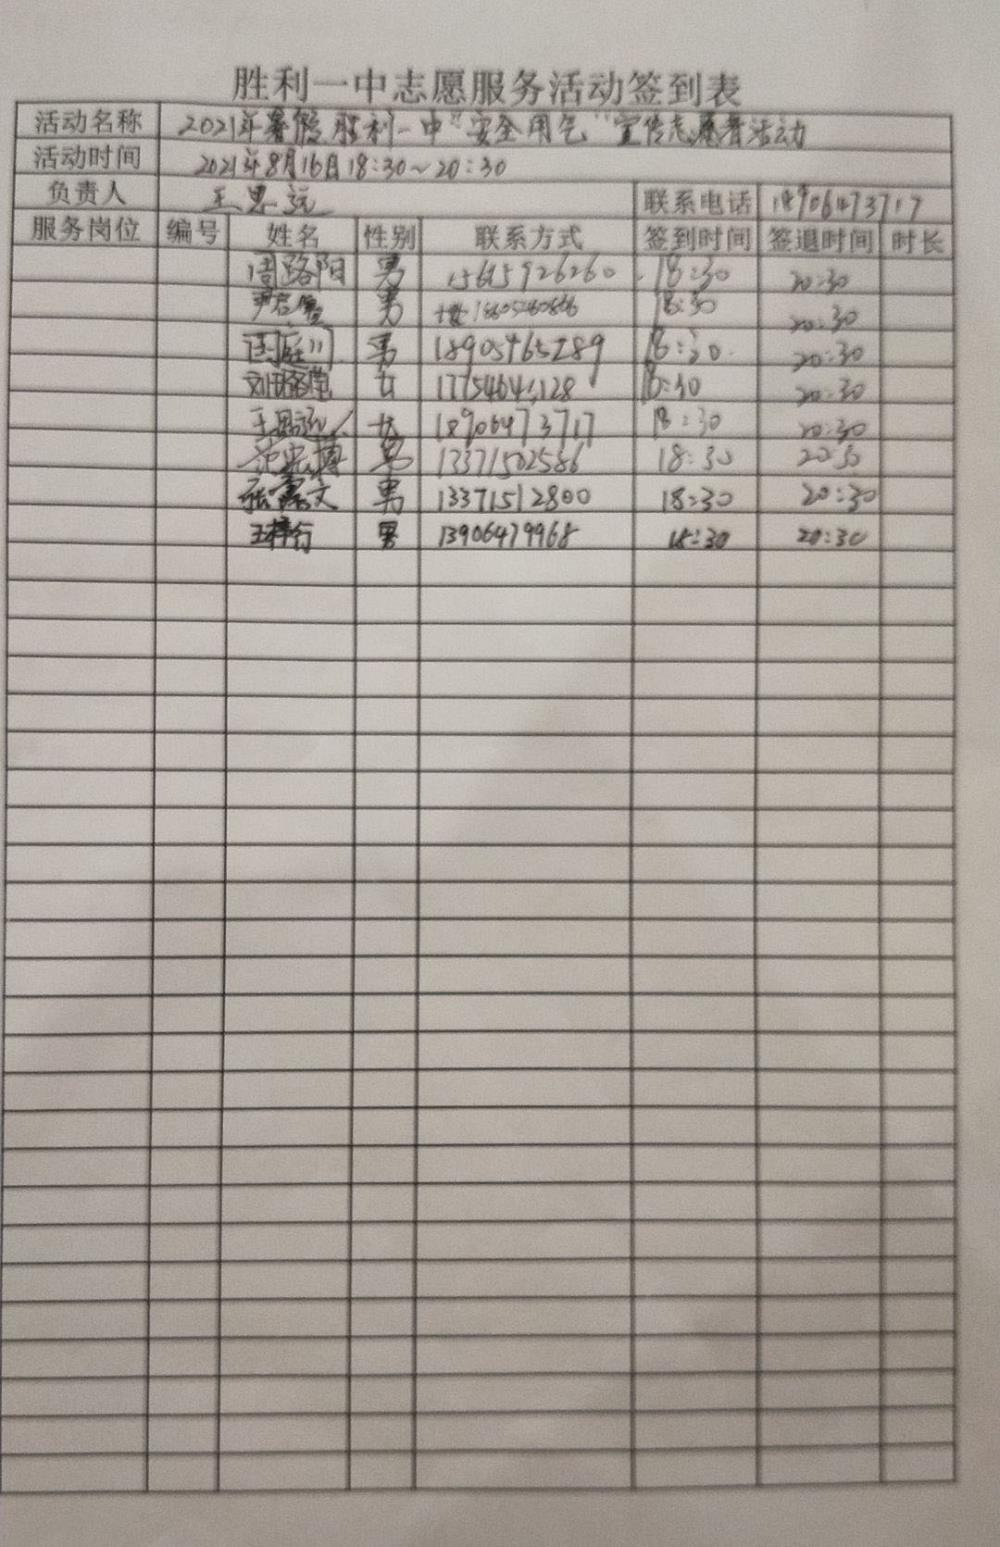 胜利一中志愿服务活动签到表
活动名称 2021年暑假胜利一中"安全用气"宣传志愿者活动
活动时间 2021年8月16日18:30~20:30
负责人 王思远 联系电话 18906473717
服务岗位 编号 姓名 性别 联系方式 签到时间 签退时间 时长
周路阳 男 15615926260 18:30 20:30
尹 男 18:30 20:30
男 18905465289 18:30 20:30
刘 女 18:30 20:30
王思远 女 18906473717 18:30 20:30
范 男 13371502586 18:30 20:30
张 文 男 13371512800 18:30 20:30
王梓行 男 13906479968 18:30 20:30